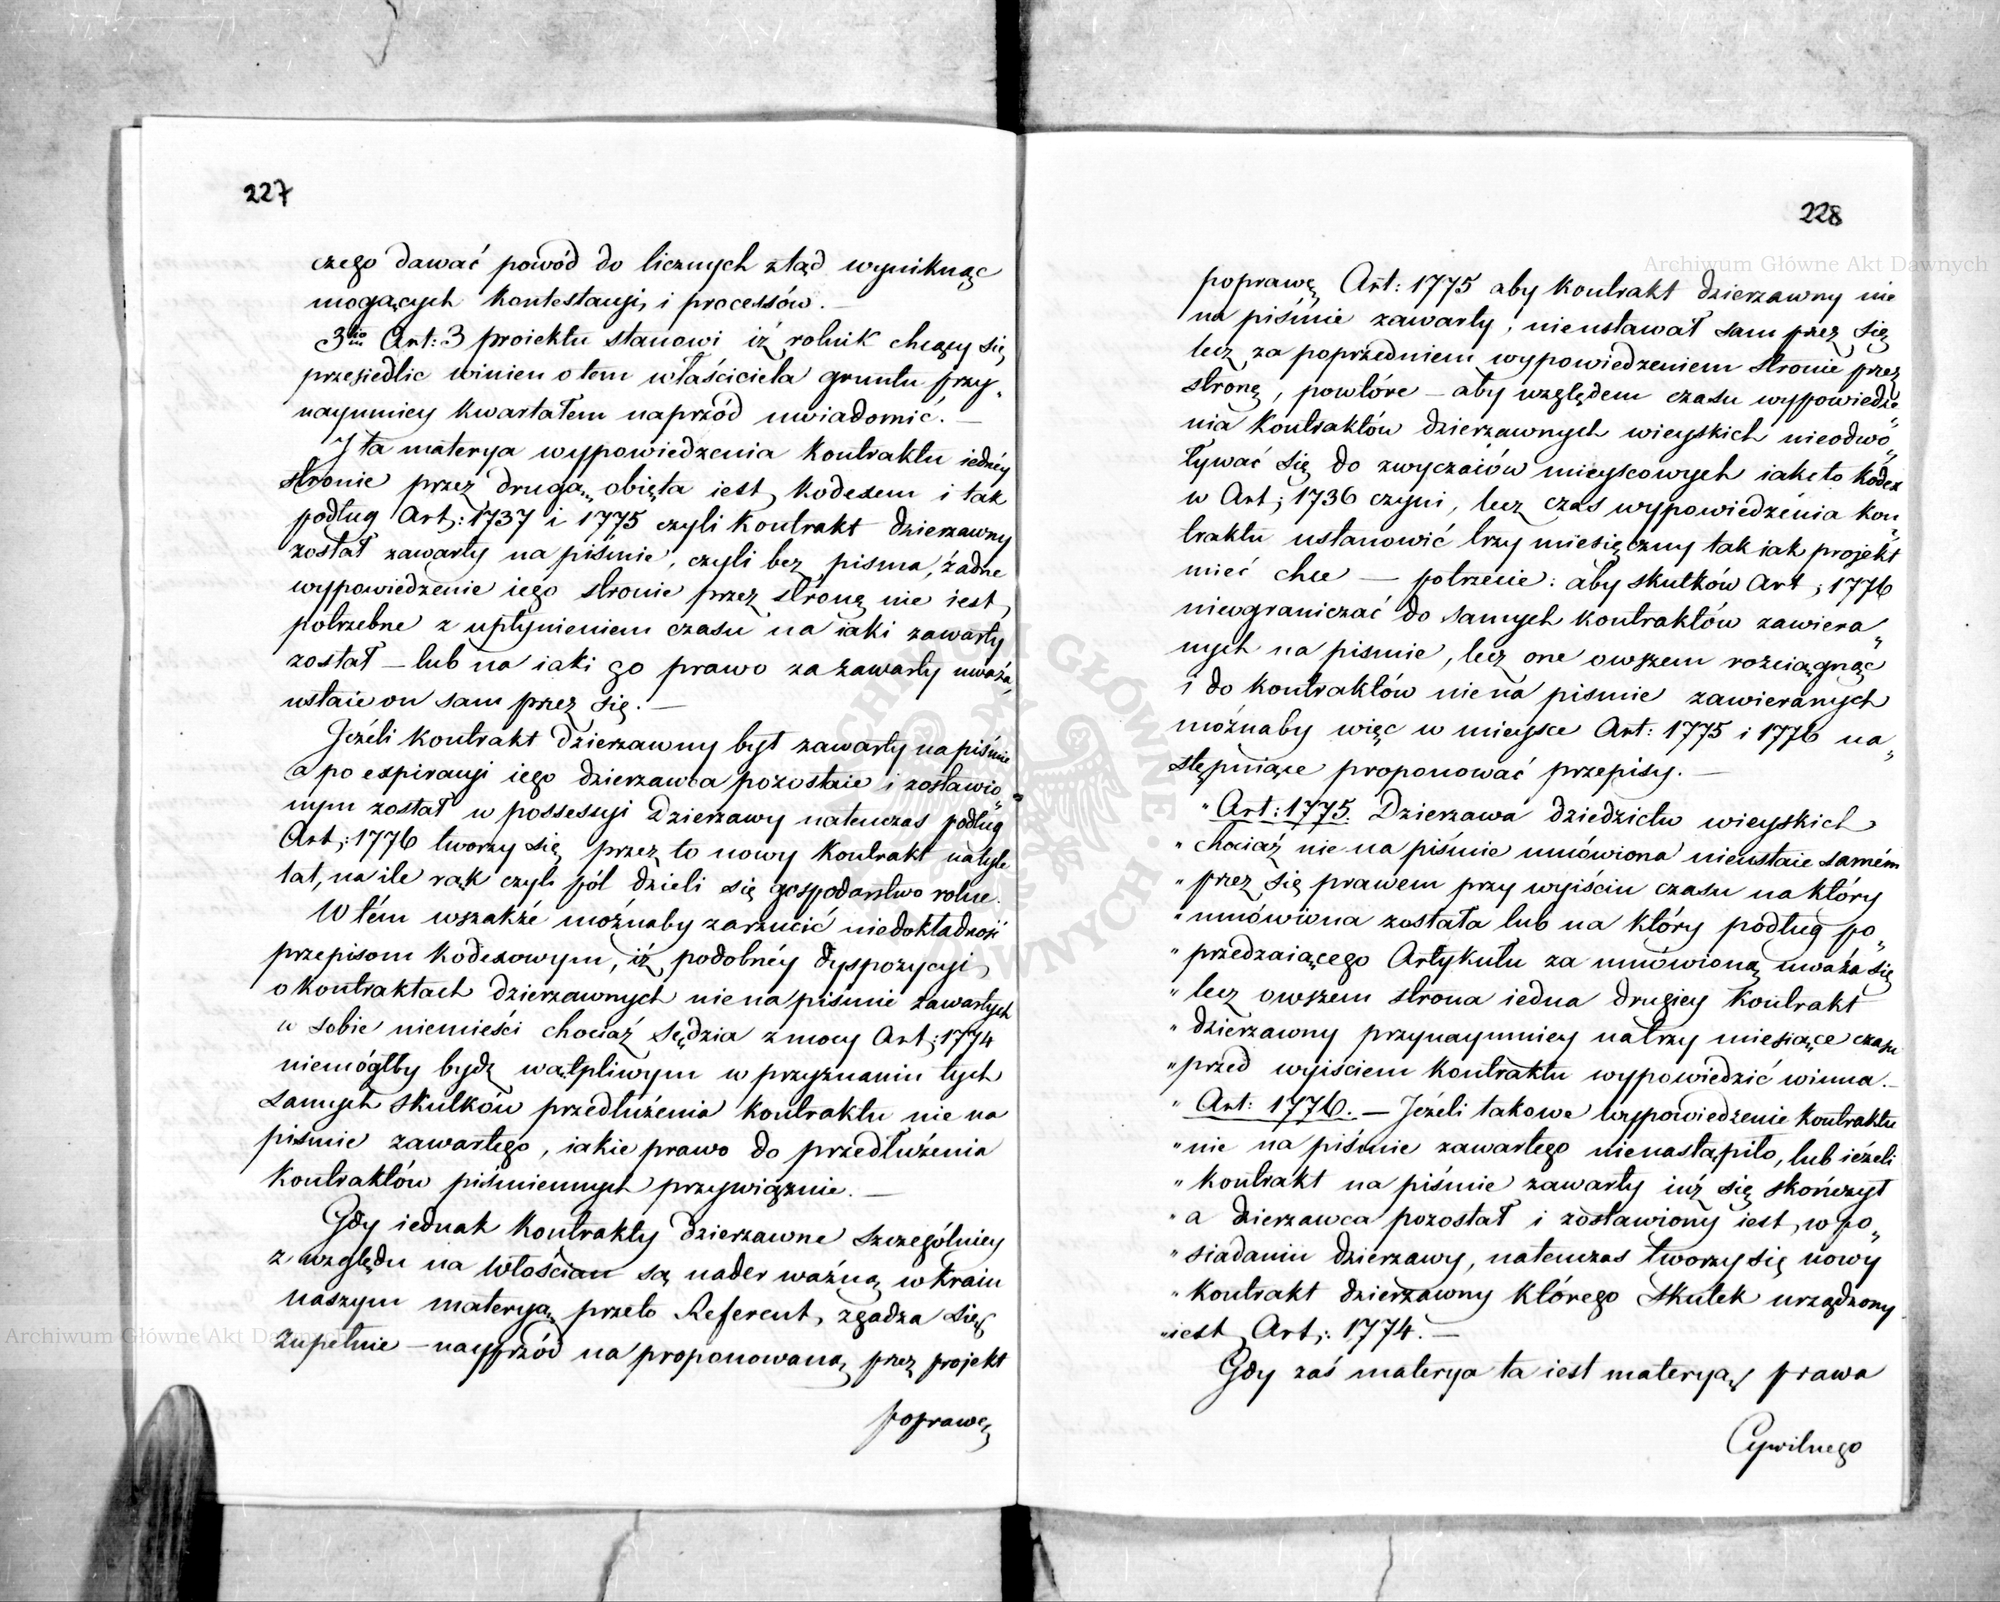 227
czego dawać powód do licznych ztąd wyniknąć
mogących kontestacyi, i processów. —
3tio Art: 3 proiektu stanowi iż rolnik chcący się
przesiedlic winien o tem właściciela gruntu przy„
naymniey kwartałem naprzód uwiadomić. —
I ta materya wypowiedzenia kontraktu iednéy
stronie przez drugą, obięta iest kodexem i tak
podług Art: 1737 i 1775 czyli kontrakt dzierzawny
został zawarty na piśmie, czyli bez pisma, żadne
wypowiedzenie iego stronie przez stronę nie iest
potrzebne z upłynieniem czasu na iaki zawarty
został — lub na iaki go prawo za zawarty uważa,
ustaie on sam przez się. —
Jeżeli kontrakt dzierzawny był zawarty na piśmie
a po expiracyi iego dzierzawca pozostaie i zostawio„
nym został w possessyi Dzierzawy natenczas podług
Art: 1776 tworzy się przez to nowy kontrakt na tyle
lat, na ile rąk czyli pól dzieli się gospodarstwo rolne.
W tém wszakże możnaby zarzucić niedokładność
przepisom kodexowym, iż podobnéy dyspozycyi
o kontraktach dzierzawnych nie na piśmie zawartych
w sobie niemieści chociaż Sędzia z mocy Art: 1774
niemógłby bydź wątpliwym w przyznaniu tych
samych skutków przedłużenia kontraktu nie na
piśmie zawartego, iakie prawo do przedłużenia
kontraktów piśmiennych przywiązuie. —
Gdy iednak kontrakty dzierzawne szczególniey
z względu na Włościan są nader ważną w kraiu
naszym materyą, przeto Referent, zgadza się
zupełnie — nayprzód na proponowaną przez projekt
poprawę
228
poprawę Art: 1775 aby kontrakt dzierzawny nie
na piśmie zawarty, nieustawał sam przez się
lecz za poprzedniem wypowiedzeniem stronie przez
stronę, powtóre — aby względem czasu wypowiedze
nia kontraktów dzierzawnych wieyskich nieodwo„
ływać się do zwyczaiów mieyscowych iak to kodex
w Art: 1736 czyni, lecz czas wypowiedzenia kon„
traktu ustanowić trzymiesięczny tak iak projekt
mieć chce — potrzecie: aby skutków Art: 1776
nieograniczać do samych kontraktów zawiera„
nych na pismie, lecz one owszem rozciągnąć
i do kontraktów nie na pismie zawieranych
możnaby więc w mieysce Art: 1775 i 1776 na„
stępuiące proponować przepisy. —
" Art: 1775. Dzierzawa dziedzictw wieyskich
" chociaż nie na piśmie umówiona nieustaie samém
" przez się prawem przy wyiściu czasu na który
" umówiona została lub na który podług po„
" przedzaiącego Artykułu za umówioną uważa się
" lecz owszem strona iedna drugiey kontrakt
" dzierzawny przynaymniey na trzy miesiące czasu
" przed wyiściem kontraktu wypowiedzić winna. —
" Art: 1776. — Jeżeli takowe wypowiedzenie kontraktu
" nie na piśmie zawartego nienastąpiło, lub ieżeli
" kontrakt na piśmie zawarty iuż się skończył
" a dzierzawca pozostał i zostawiony iest w po„
" siadaniu dzierzawy, natenczas tworzy się nowy
" kontrakt dzierzawny którego skutek urządzony
" iest Art: 1774. —
Gdy zaś materya ta iest materyą prawa
Cywilnego
Archiwum Główne Akt Dawnych
Archiwum Główne Akt Dawnych